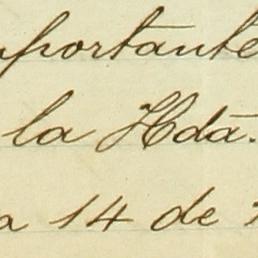 mportante
la Hda.
a 14 de